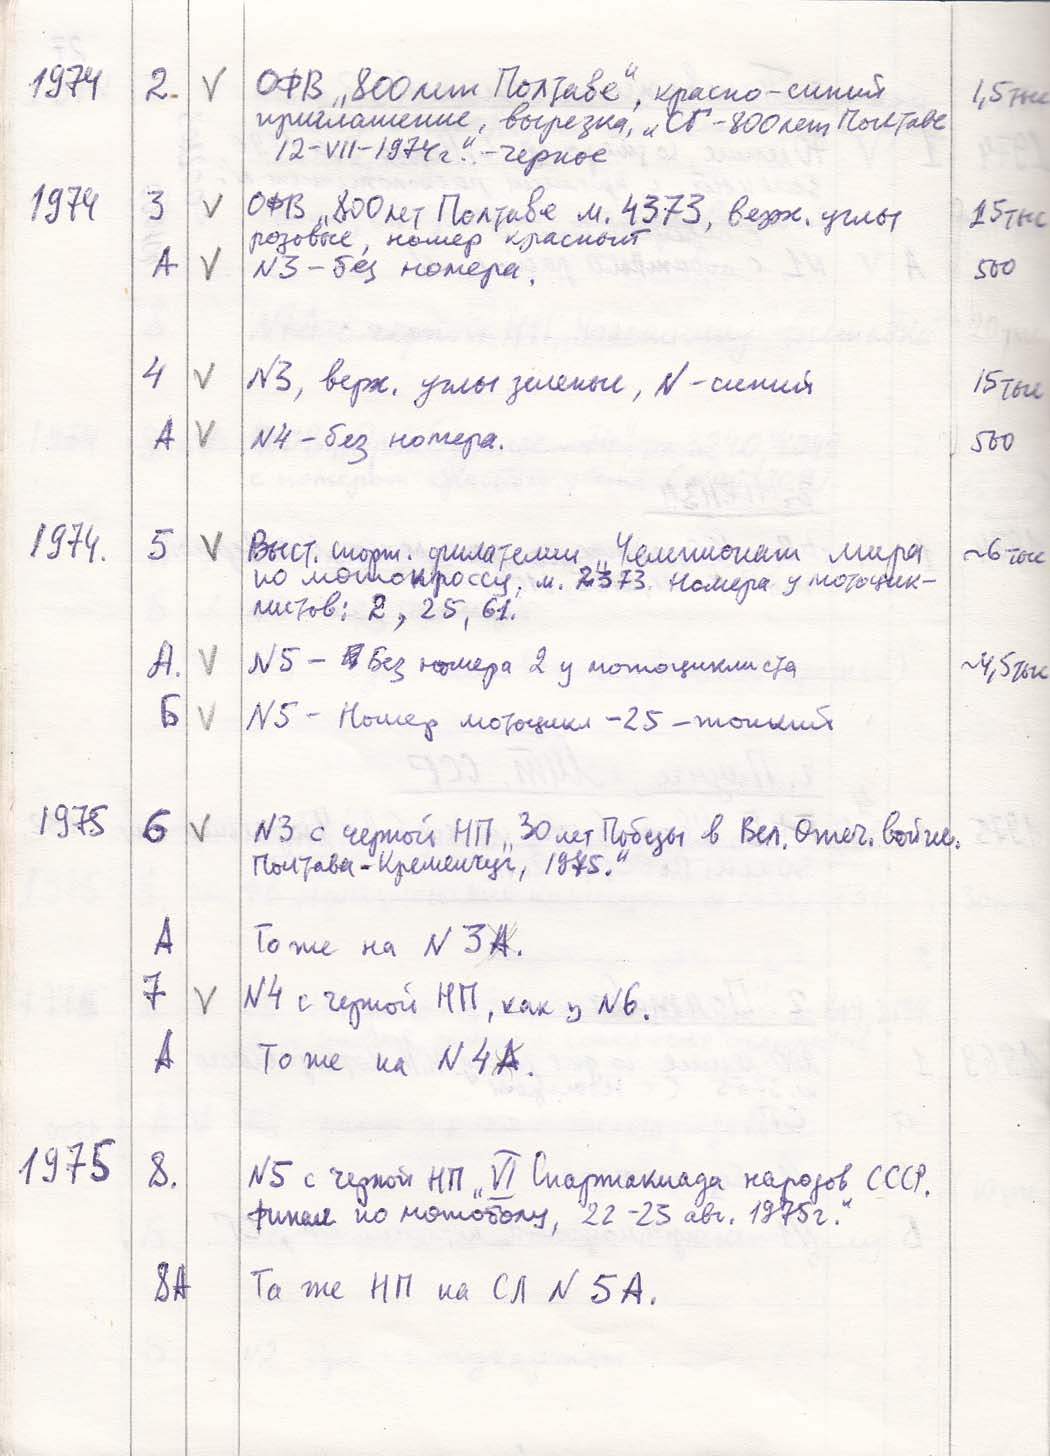 1974 2. V ОФВ „800 лет Полтаве", красно-синий 1,5 тыс
приглашение, вырезка, „СГ-800 лет Полтаве
12-VII-1974г." -черное
1974 3 V ОФВ „800 лет Полтаве м. 4373, верх. углы 15 тыс
розовые, номер красный
А V N3 - без номера. 500
4 V N3, верх. углы зеленые, N - синий 15 тыс
А V N4 - без номера. 500
1974. 5 V Выст. спорт. филателии „Чемпионат мира ~6 тыс
по мотокроссу, м. 2373. Номера у мотоцик-
листов: 2, 25, 61.
А. V N5 - Без номера 2 у мотоциклиста ~4,5 тыс
Б V N5 - Номер мотоцикл -25 - тонкий
1975 6 V N3 с черной НП „30 лет Победы в Вел. Отеч. войне.
Полтава-Кременчуг, 1975."
А То же на N 3А.
7 V N4 с черной НП, как у N6.
А То же на N 4А.
1975 8. N5 с черной НП „VI Спартакиада народов СССР.
Финал по мотоболу, 22-25 авг. 1975г."
8А Та же НП на СЛ N 5А.